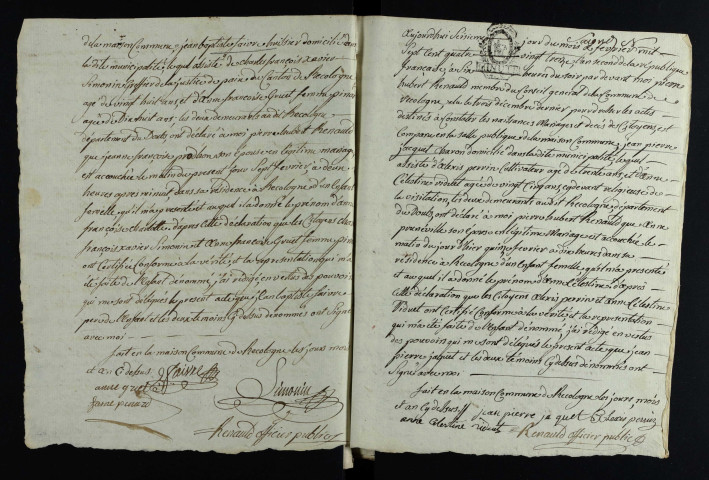 de la maison commune, jean baptiste faivre huissier domicilié dans
la dite municipalité, lequel assisté de charles françois xavier
Simonin greffier de la justice de paix du Canton de Recologne
agé de vingt huit ans, et d'anne françoise Gruet femme pinard
agée de les deux demeurants audit Recologne
département du Doubs, ont déclaré à moi pierre hubert Renauld
que jeanne françoise prodhon son épouse en légitime mariage
est accouchée le matin du present jour Sept fevrier, a deux
heures après minuit dans sa résidence à Recologne d'un Enfant
femelle qu'il m'a présenté et auquel il a donné le prénom d'anne
françoise d'après cette déclaration que les Citoyens charles
françois xavier Simonin et anne françoise Gruet femme pinard
ont Certifiée Conforme à la vérité, et la représentation qui m'a
été faite de l'enfant dénommé, j'ai rédigé en vertu des pouvoirs
qui me sont délégués le present acte que jean baptiste faivre
pere de l'enfant et les deux temoins cy dessus dénommés ont Signé
avec moi
fait en la maison Commune de Recologne les jours, mois
et an Cy dessus Faivre
anne gruet Simonin
fame pinard
Renauld officier public
aujourd'hui Seizieme jour du mois de fevrier mil
Sept Cent quatre vingt treize l'an second de la République
française, a Six heures du soir par devant moi pierre
hubert Renauld membre du Conseil general de la Commune de
Recologne, élu le trois décembre dernier pour rediger les actes
destinés à constater les naissances Mariages et décès des Citoyens, est
comparu en la salle publique de la maison Commune, jean pierre
jacquet domicilié dans la dite municipalité, lequel
assisté d'alexis perrin cultivateur agé de trente ans, et d'anne
Célestine viduet agée de vingt Cinq ans, cy devant religieuse de
la visitation, les deux demeurants au dit Recologne, département
du Doubs, ont déclaré à moi pierre hubert Renauld que anne
son épouse en légitime Mariage est accouchée le
matin du jour d'hier quinze fevrier a dix heures dans sa
résidence à Recologne d'un Enfant femelle qu'il m'a présenté
et auquel il a donné le prénom d'anne Célestine d'après
Cette déclaration que les Citoyens alexis perrin et anne Célestine
viduet ont Certifié Conforme à la vérité et la représentation
qui m'a été faite de l'enfant dénommé, j'ai rédigé en vertu
des pouvoirs qui me sont délégués le present acte que jean
pierre jacquet et les deux temoins Cy dessus dénommés ont
Signé avec moi
fait en la maison Commune de Recologne les jours, mois
et an Cy dessus jean pierre jaquet alexis perrin
anne Celestine viduet
Renauld officier public